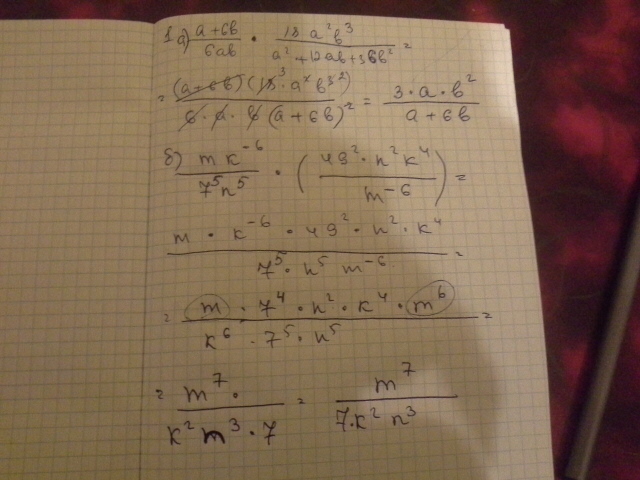 1 а) (a+6b)/(6ab) · (18a²b³)/(a²+12ab+36b²) =
= ((a+6b)(18³·a²b³²))/(6·a·b(a+6b)²) = (3·a·b²)/(a+6b)
б) (mk⁻⁶)/(7⁵n⁵) · ((49²·n²k⁴)/(m⁻⁶)) =
(m·k⁻⁶·49²·n²·k⁴)/(7⁵·n⁵m⁻⁶) =
= (m·7⁴·n²·k⁴·m⁶)/(k⁶·7⁵·n⁵) =
= (m⁷·)/(k²n³·7) = (m⁷)/(7·k²n³)